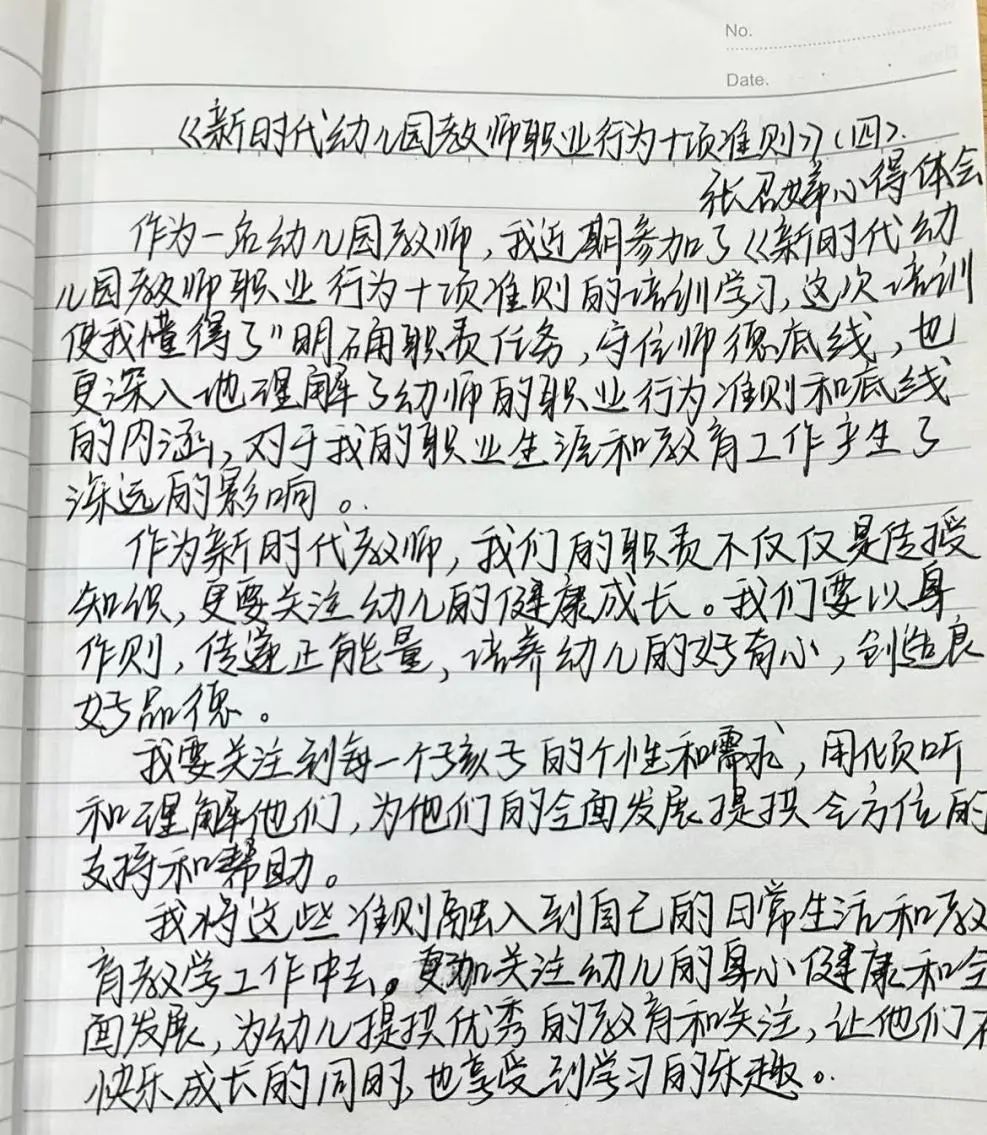 No.
Date.
《新时代幼儿园教师职业行为十项准则》(四).
张召娣心得体会
作为一名幼儿园教师,我近期参加了《新时代幼
儿园教师职业行为十项准则的培训学习,这次培训
使我懂得了"明确职责任务,守住师德底线,也
更深入地理解了幼师的职业行为准则和底线
的内涵,对于我的职业生涯和教育工作产生了
深远的影响。
作为新时代教师,我们的职责不仅仅是传授
知识,更要关注幼儿的健康成长。我们要以身
作则,传递正能量,培养幼儿的好奇心,创造良
好品德。
我要关注到每一个孩子的个性和需求,用倾听
和理解他们,为他们的全面发展提供全方位的
支持和帮助。
我将这些准则融入到自己的日常生活和教
育教学工作中去。更加关注幼儿的身心健康和全
面发展,为幼儿提供优秀的教育和关注,让他们在
快乐成长的同时,也享受到学习的乐趣。